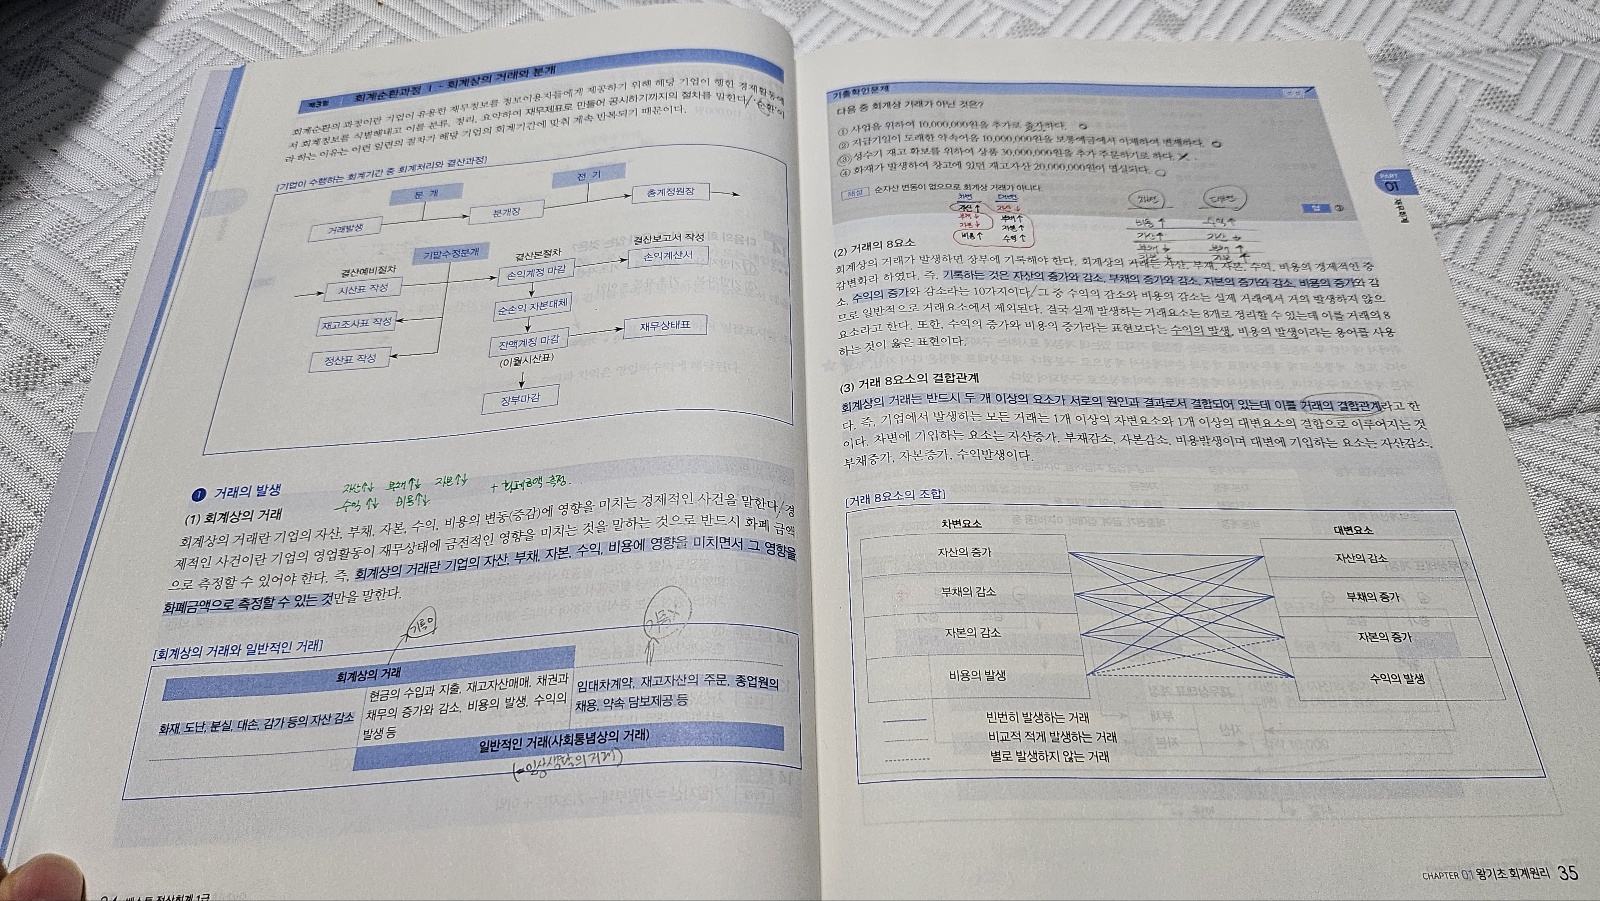 제3절 회계순환과정 Ⅰ - 회계상의 거래와 분개
회계순환의 과정이란 기업이 유용한 재무정보를 정보이용자들에게 제공하기 위해 해당 기업이 행한 경제활동에
서 회계정보를 식별해내고 이를 분류, 정리, 요약하여 재무제표로 만들어 공시하기까지의 절차를 말한다. 순환이
라 하는 이유는 이런 일련의 절차가 해당 기업의 회계기간에 맞춰 계속 반복되기 때문이다.
[기업이 수행하는 회계기간 중 회계처리와 결산과정]
분 개
전 기
거래발생
분개장
총계정원장
기말수정분개
결산예비절차
결산본절차
결산보고서 작성
시산표 작성
손익계정 마감
손익계산서
재고조사표 작성
순손익 자본대체
정산표 작성
잔액계정 마감
재무상태표
(이월시산표)
장부마감
1 거래의 발생
자산↑↓ 부채↑↓ 자본↑↓ + 화폐금액 측정
수익↑↓ 비용↑↓
(1) 회계상의 거래
회계상의 거래란 기업의 자산, 부채, 자본, 수익, 비용의 변동(증감)에 영향을 미치는 경제적인 사건을 말한다. 경
제적인 사건이란 기업의 영업활동이 재무상태에 금전적인 영향을 미치는 것을 말하는 것으로 반드시 화폐 금액
으로 측정할 수 있어야 한다. 즉, 회계상의 거래란 기업의 자산, 부채, 자본, 수익, 비용에 영향을 미치면서 그 영향을
화폐금액으로 측정할 수 있는 것만을 말한다.
기록O
기록X
[회계상의 거래와 일반적인 거래]
회계상의 거래
화재, 도난, 분실, 대손, 감가 등의 자산 감소
현금의 수입과 지출, 재고자산매매, 채권과
채무의 증가와 감소, 비용의 발생, 수익의
발생 등
임대차계약, 재고자산의 주문, 종업원의
채용, 약속 담보제공 등
일반적인 거래(사회통념상의 거래)
(=일상생활의 거래)
기출확인문제
다음 중 회계상 거래가 아닌 것은?
① 사업을 위하여 10,000,000원을 추가로 출자하다. O
② 지급기일이 도래한 약속어음 10,000,000원을 보통예금에서 이체하여 변제하다. O
③ 성수기 재고 확보를 위하여 상품 30,000,000원을 추가 주문하기로 하다. X
④ 화재가 발생하여 창고에 있던 재고자산 20,000,000원이 멸실되다. O
해설 순자산 변동이 없으므로 회계상 거래가 아니다.
답 ③
차변 대변
자산↑ 자산↓
부채↓ 부채↑
자본↓ 자본↑
비용↑ 수익↑
차변 대변
비용↑ 수익↑
자산↑ 자산↓
부채↓ 부채↑
자본↓ 자본↑
PART
01
(2) 거래의 8요소
회계상의 거래가 발생하면 장부에 기록해야 한다. 회계상의 거래는 자산, 부채, 자본, 수익, 비용의 경제적인 증
감변화라 하였다. 즉, 기록하는 것은 자산의 증가와 감소, 부채의 증가와 감소, 자본의 증가와 감소, 비용의 증가와 감
소, 수익의 증가와 감소라는 10가지이다. 그 중 수익의 감소와 비용의 감소는 실제 거래에서 거의 발생하지 않으
므로 일반적으로 거래요소에서 제외된다. 결국 실제 발생하는 거래요소는 8개로 정리할 수 있는데 이를 거래의 8
요소라고 한다. 또한, 수익의 증가와 비용의 증가라는 표현보다는 수익의 발생, 비용의 발생이라는 용어를 사용
하는 것이 옳은 표현이다.
(3) 거래 8요소의 결합관계
회계상의 거래는 반드시 두 개 이상의 요소가 서로의 원인과 결과로서 결합되어 있는데 이를 거래의 결합관계라고 한
다. 즉, 기업에서 발생하는 모든 거래는 1개 이상의 차변요소와 1개 이상의 대변요소의 결합으로 이루어지는 것
이다. 차변에 기입하는 요소는 자산증가, 부채감소, 자본감소, 비용발생이며 대변에 기입하는 요소는 자산감소,
부채증가, 자본증가, 수익발생이다.
[거래 8요소의 조합]
차변요소
대변요소
자산의 증가
자산의 감소
부채의 감소
부채의 증가
자본의 감소
자본의 증가
비용의 발생
수익의 발생
빈번히 발생하는 거래
비교적 적게 발생하는 거래
별로 발생하지 않는 거래
CHAPTER 01 왕기초 회계원리 35